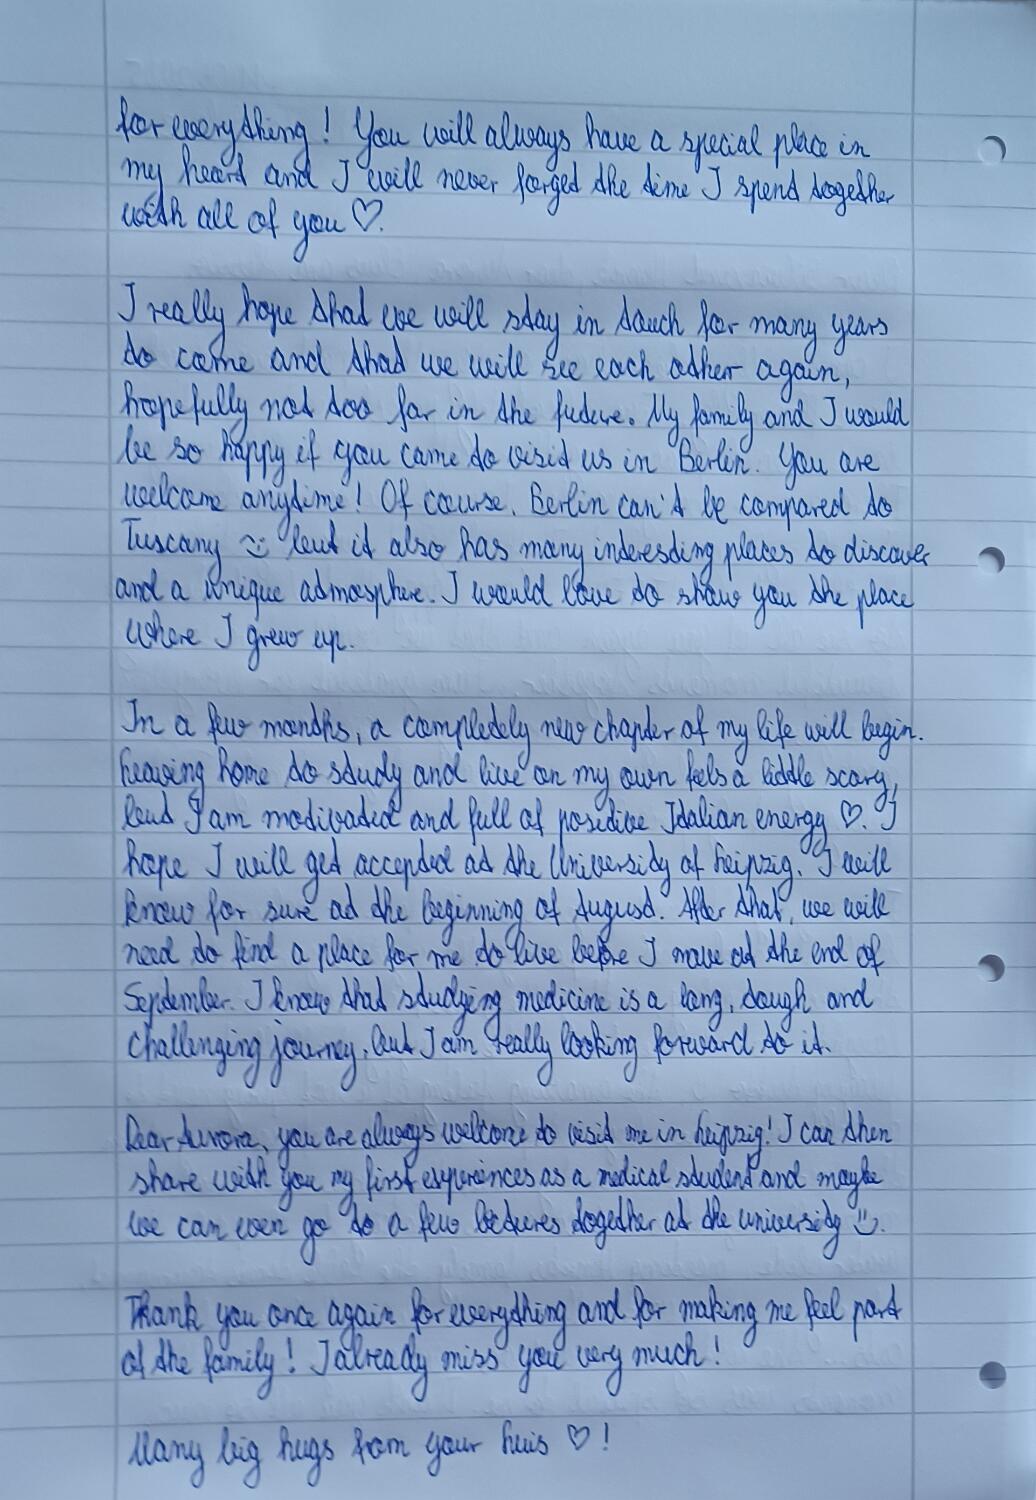 for everything! You will always have a special place in
my heart and I will never forget the time I spend together
with all of you ♡.
I really hope that we will stay in touch for many years
to come and that we will see each other again,
hopefully not too far in the future. My family and I would
be so happy if you came to visit us in Berlin. You are
welcome anytime! Of course, Berlin can't be compared to
Tuscany :) but it also has many interesting places to discover
and a unique atmosphere. I would love to show you the place
where I grew up.
In a few months, a completely new chapter of my life will begin.
Leaving home to study and live on my own feels a little scary,
but I am motivated and full of positive Italian energy ♡. I
hope I will get accepted at the University of Leipzig. I will
know for sure at the beginning of August. After that, we will
need to find a place for me to live before I move at the end of
September. I know that studying medicine is a long, tough and
challenging journey, but I am really looking forward to it.
Dear Aurora, you are always welcome to visit me in Leipzig! I can then
share with you my first experiences as a medical student and maybe
we can even go to a few lectures together at the university :).
Thank you once again for everything and for making me feel part
of the family! I already miss you very much!
Many big hugs from your ♡!